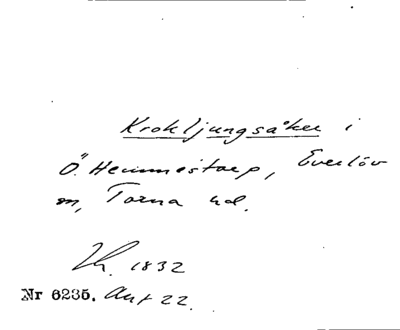 Krokljungsåker i
Ö. Hemmestorp, Everlöv
sn, Torna hd.
Lh. 1832
Nr 6235. Akt 22.